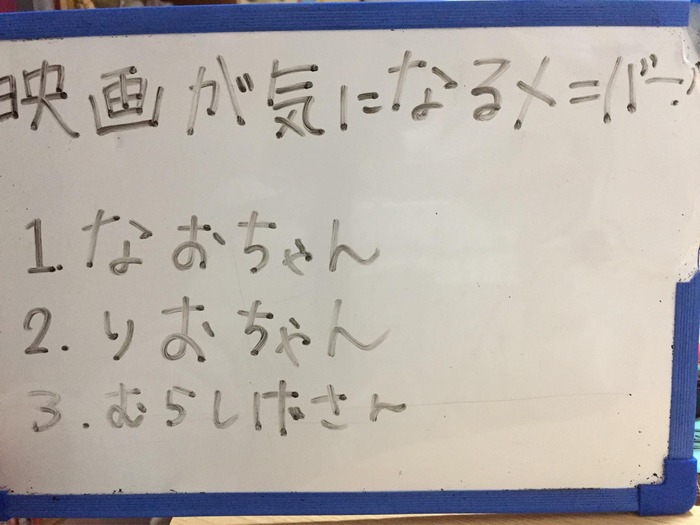 映画が気になるメンバー
1.なおちゃん
2.りおちゃん
3.むらしげさん